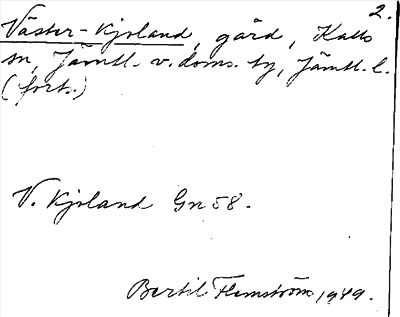 2.
Väster-Kjoland, gård, Kalls
sn, Jämtl. v. doms. tg, Jämtl. l.
(forts.)
V. Kjoland Gn 58.
Bertil Flemström 1949.